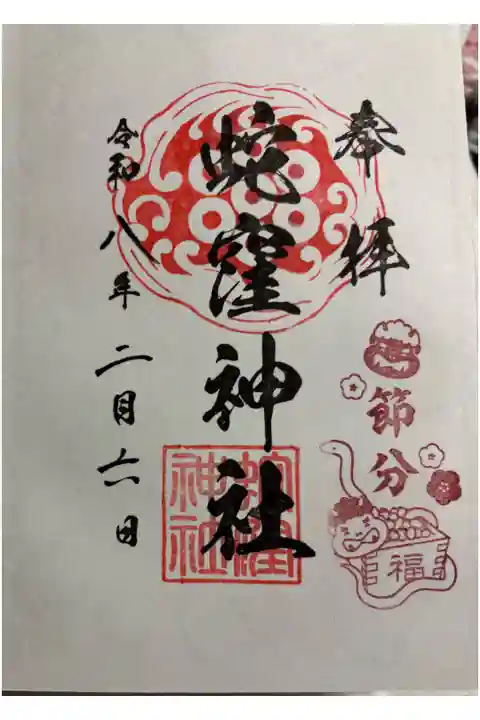 奉拝
蛇窪神社
令和八年 二月六日
節分
福
蛇窪
神社